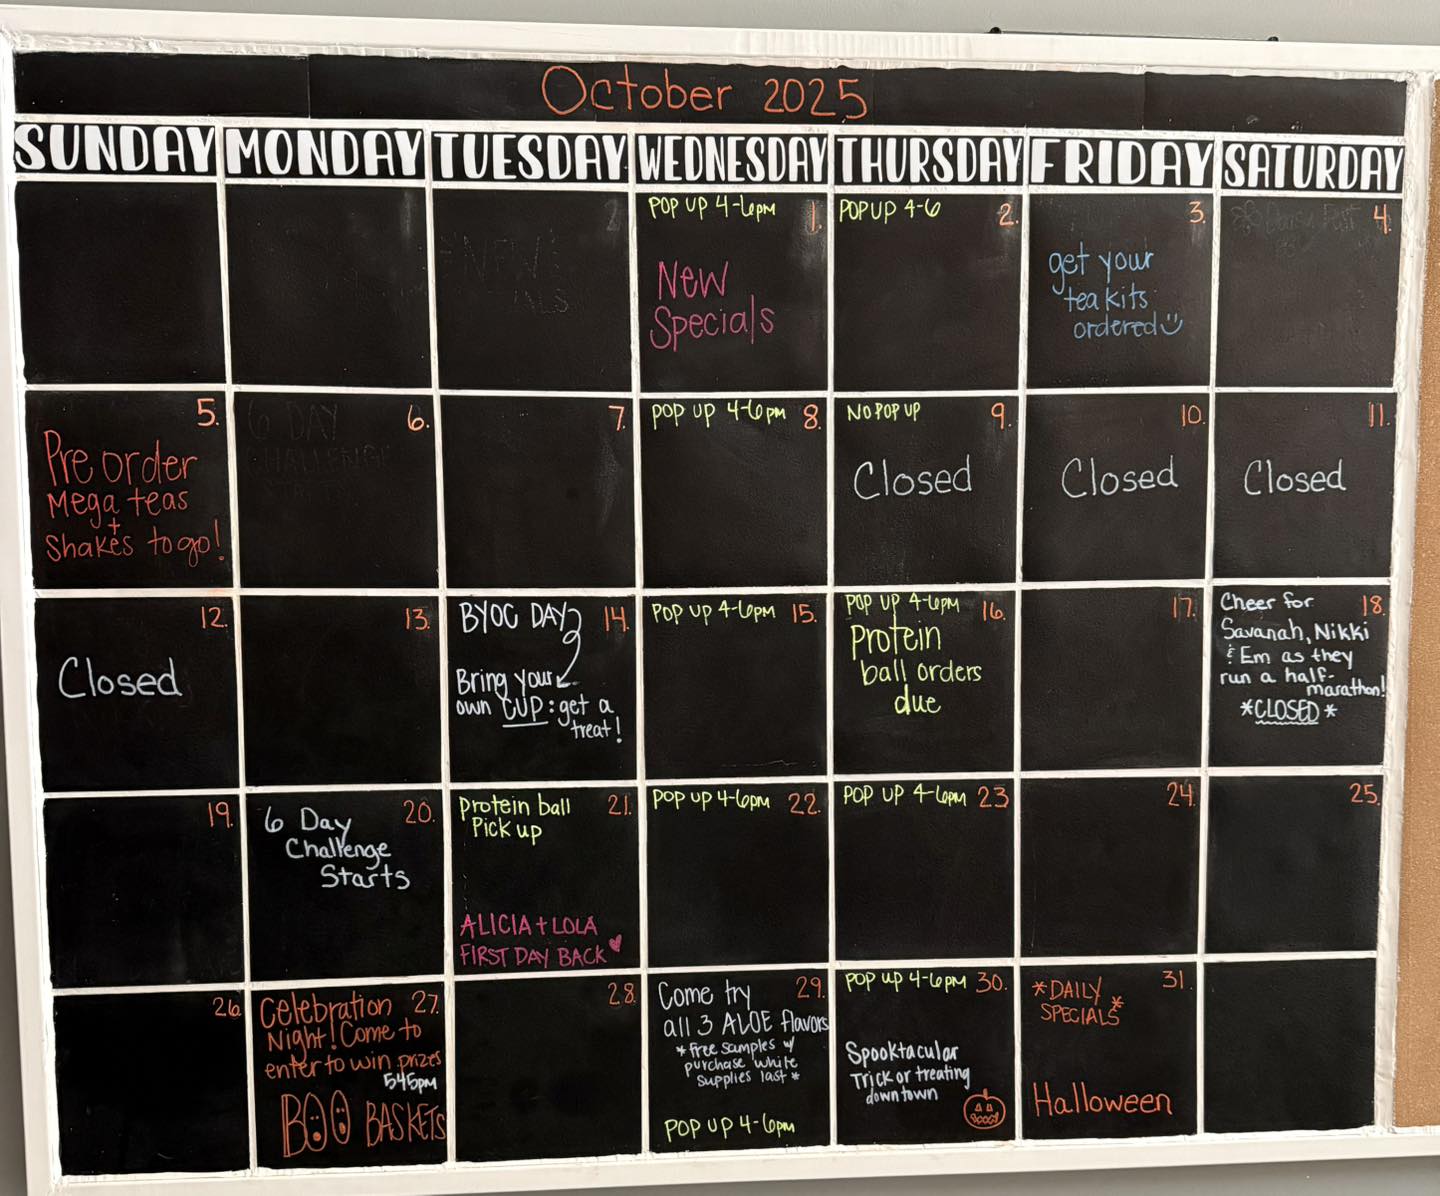 October 2025
SUNDAY MONDAY TUESDAY WEDNESDAY THURSDAY FRIDAY SATURDAY
POP UP 4-6pm 1.
New
Specials
POP UP 4-6 2.
3.
get your
tea kits
ordered
4.
5.
Pre order
Mega teas
+
Shakes to go!
6 DAY 6.
CHALLENGE
7.
POP UP 4-6pm 8.
NO POP UP 9.
Closed
10.
Closed
11.
Closed
12.
Closed
13.
BYOC DAY 14.
Bring your
own CUP: get a
treat!
POP UP 4-6pm 15.
POP UP 4-6pm 16.
Protein
ball orders
due
17.
Cheer for 18.
Savanah, Nikki
& Em as they
run a half-
marathon!
*CLOSED*
19.
6 Day 20.
Challenge
Starts
protein ball 21.
Pick up
ALICIA + LOLA
FIRST DAY BACK
POP UP 4-6pm 22.
POP UP 4-6pm 23
24.
25.
26.
Celebration 27.
Night! Come to
enter to win prizes
545pm
BOO BASKETS
28.
Come try 29.
all 3 ALOE flavors
*free samples w/
purchase while
supplies last*
POP UP 4-6pm
POP UP 4-6pm 30.
Spooktacular
Trick or treating
downtown
31.
*DAILY
SPECIALS*
Halloween